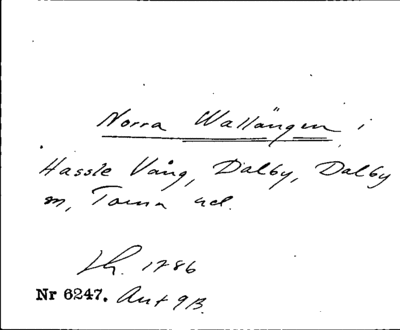 Norra Wallängen i
Hassle Vång, Dalby, Dalby
sn, Torna hd.
Lh. 1786
Nr 6247. Aut 9B.